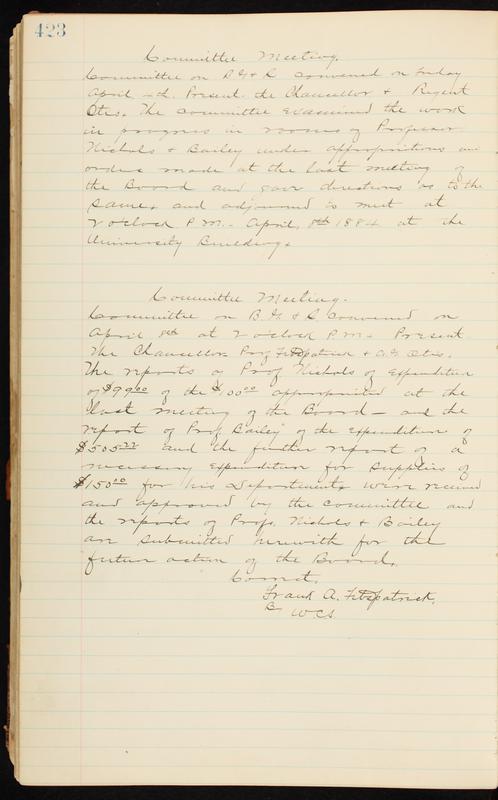 423
Committee Meeting.
Committee on B G & L convened on Friday
April 4th. Present the Chancellor & Regent
Otis. The committee examined the work
in progress in rooms of Professor
Nichols & Bailey under appropriations and
orders made at the last meeting of
the Board and gave directions as to the
same, and adjourned to meet at
2 o'clock P.M. April, 8th 1884 at the
University Building.
Committee Meeting.
Committee on B. G. & L convened on
April 8th at 2 o'clock P.M. Present
The Chancellor Prof Fitzpatrick & A. G. Otis.
The reports of Prof Nichols of Expenditure
of $99.00 of the $100.00 appropriated at the
last meeting of the Board - and the
report of Prof Bailey of the expenditure of
$505.22 and the further report of a
necessary expenditure for supplies of
$150.00 for his Departments were received
and approved by the committee and
the reports of Profs. Nichols & Bailey
are submitted herewith for the
future action of the Board.
Correct.
Frank A. Fitzpatrick.